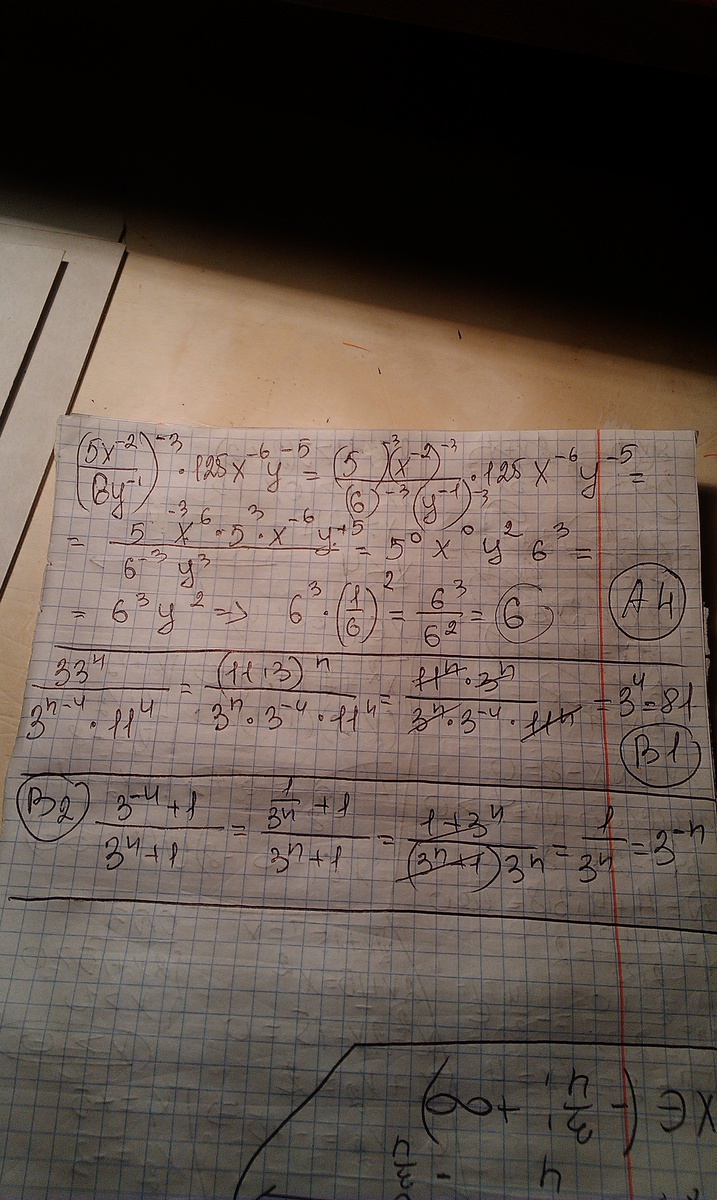 (5x⁻²/6y⁻¹)⁻³ · 125x⁻⁶y⁻⁵ = (5)⁻³(x⁻²)⁻³/(6)⁻³(y⁻¹)⁻³ · 125x⁻⁶y⁻⁵ =
= 5⁻³x⁶·5³·x⁻⁶y⁺⁵/6⁻³y³ = 5⁰x⁰y²6³ =
= 6³y² => 6³·(1/6)² = 6³/6² = 6 A4
33ⁿ/3ⁿ⁻⁴·11ⁿ = (11·3)ⁿ/3ⁿ·3⁻⁴·11ⁿ = 11ⁿ·3ⁿ/3ⁿ·3⁻⁴·11ⁿ = 3⁴=81
B1
B2 3⁻ⁿ+1/3ⁿ+1 = 1/3ⁿ+1/3ⁿ+1 = 1+3ⁿ/(3ⁿ+1)3ⁿ = 1/3ⁿ = 3⁻ⁿ